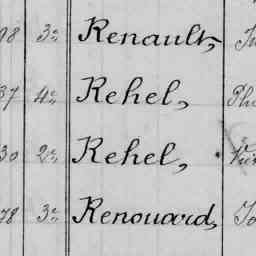 98 3e Renault,
37 4e Rehel,
30 2e Rehel,
78 3e Renouard,